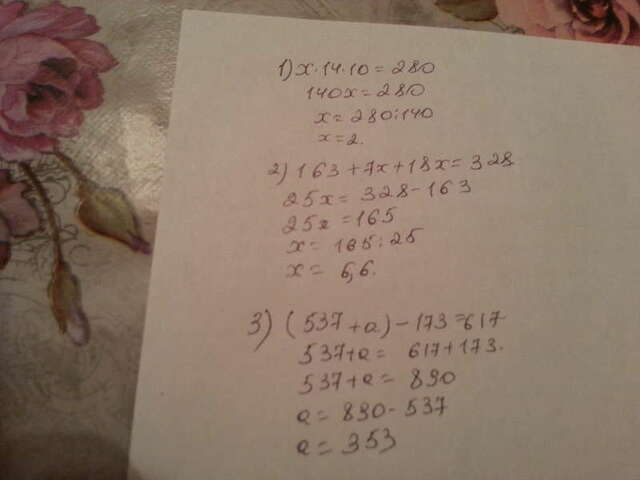 1) x·14·10=280
140x=280
x=280:140
x=2.
2) 163+7x+18x=328
25x=328-163
25x=165
x=165:25
x=6,6.
3) (537+a)-173=617
537+a=617+173.
537+a=890
a=890-537
a=353